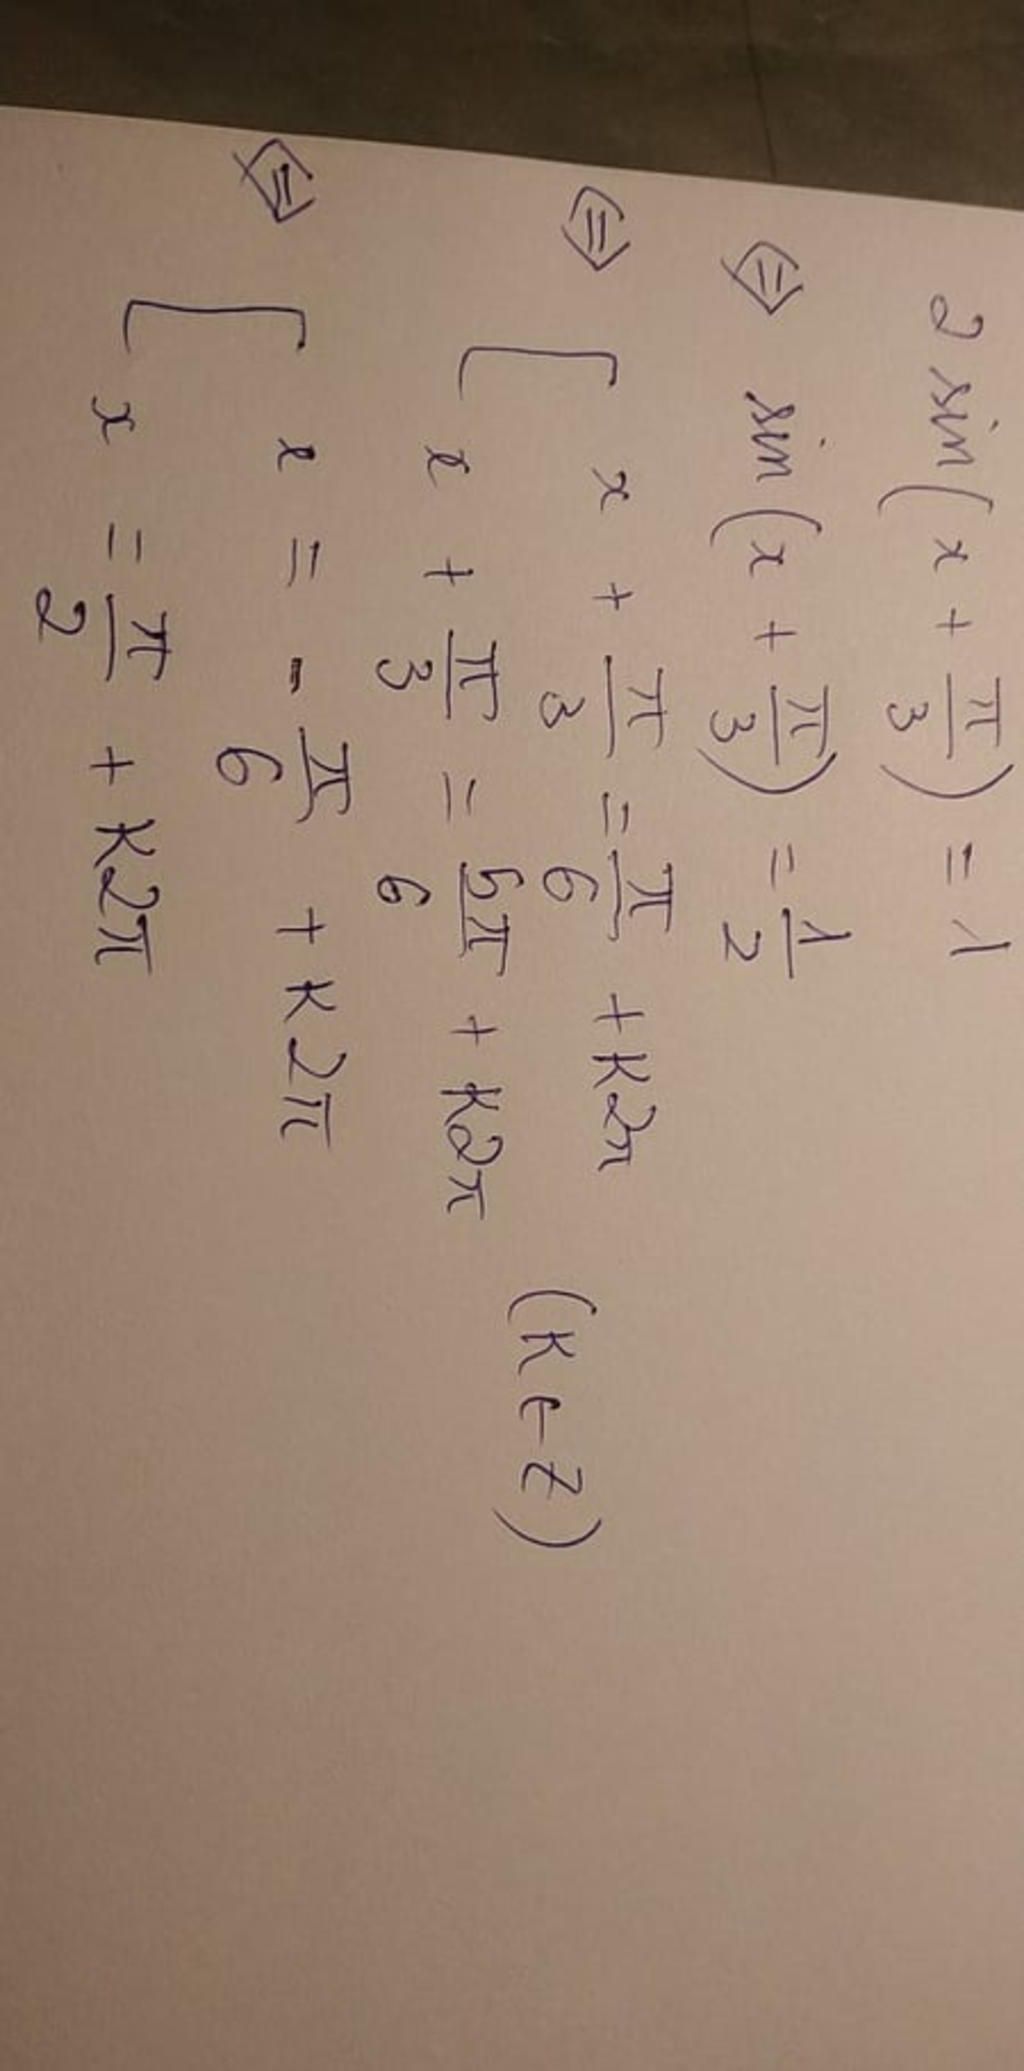 2 sin(x + π/3) = 1
⇔ sin(x + π/3) = 1/2
⇔ [ x + π/3 = π/6 + k2π
x + π/3 = 5π/6 + k2π (k ∈ Z)
⇔ [ x = - π/6 + k2π
x = π/2 + k2π